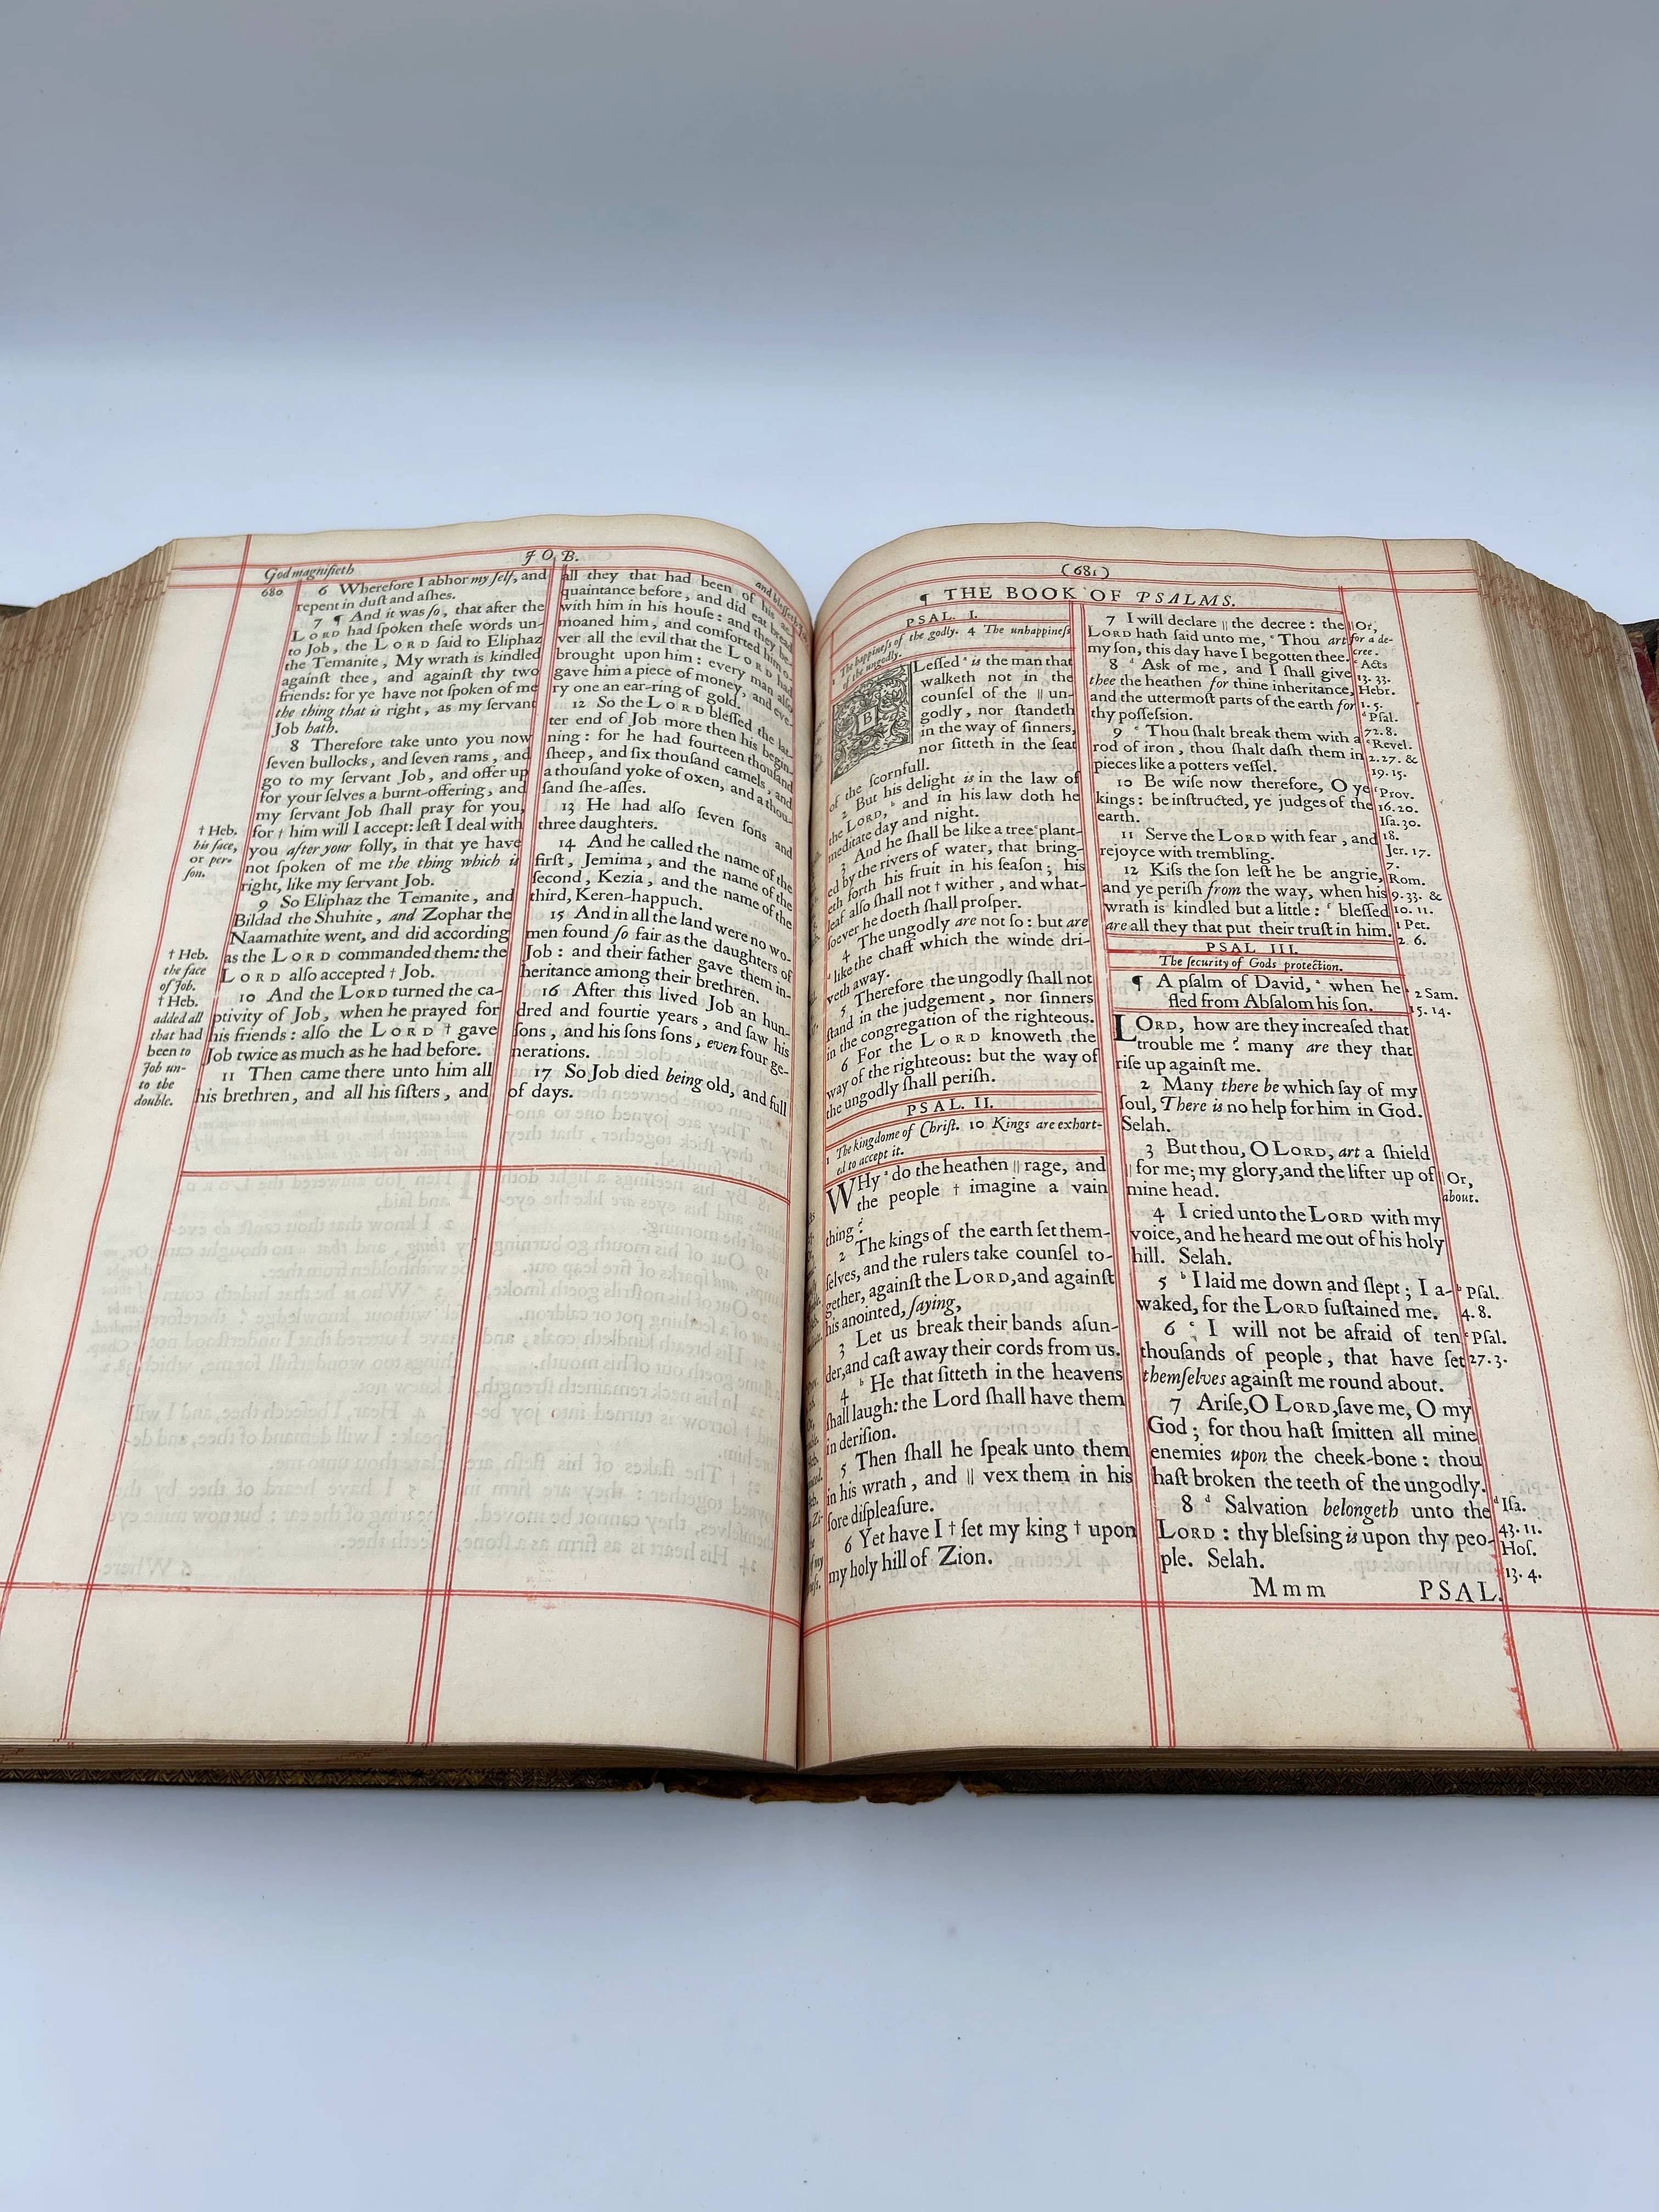 God magnifieth
JOB.
and blesseth Job.
680
6 Wherefore I abhor my ſelf, and
repent in duſt and aſhes.
7 ¶ And it was ſo, that after the
LORD had ſpoken theſe words un-
to Job, the LORD ſaid to Eliphaz
the Temanite, My wrath is kindled
againſt thee, and againſt thy two
friends: for ye have not ſpoken of me
the thing that is right, as my ſervant
Job hath.
8 Therefore take unto you now
ſeven bullocks, and ſeven rams, and
go to my ſervant Job, and offer up
for your ſelves a burnt-offering, and
my ſervant Job ſhall pray for you,
for † him will I accept: leſt I deal with
you after your folly, in that ye have
not ſpoken of me the thing which is
right, like my ſervant Job.
9 So Eliphaz the Temanite, and
Bildad the Shuhite, and Zophar the
Naamathite went, and did according
as the LORD commanded them: the
LORD alſo accepted † Job.
10 And the LORD turned the ca-
ptivity of Job, when he prayed for
his friends: alſo the LORD † gave
Job twice as much as he had before.
11 Then came there unto him all
his brethren, and all his ſiſters, and
† Heb.
his face,
or per-
ſon.
† Heb.
the face
of Job.
† Heb.
added all
that had
been to
Job un-
to the
double.
all they that had been of his ac-
quaintance before, and did eat bread
with him in his houſe: and they be-
moaned him, and comforted him o-
ver all the evil that the LORD had
brought upon him: every man alſo
gave him a piece of money, and eve-
ry one an ear-ring of gold.
12 So the LORD bleſſed the lat-
ter end of Job more then his begin-
ning: for he had fourteen thouſand
ſheep, and ſix thouſand camels, and
a thouſand yoke of oxen, and a thou-
ſand ſhe-aſſes.
13 He had alſo ſeven ſons and
three daughters.
14 And he called the name of the
firſt, Jemima, and the name of the
ſecond, Kezia, and the name of the
third, Keren-happuch.
15 And in all the land were no wo-
men found ſo fair as the daughters of
Job: and their father gave them in-
heritance among their brethren.
16 After this lived Job an hun-
dred and fourtie years, and ſaw his
ſons, and his ſons ſons, even four ge-
nerations.
17 So Job died being old, and full
of days.
(681)
¶ THE BOOK OF PSALMS.
PSAL. I.
1 The happineſs of the godly. 4 The unhappineſs
of the ungodly.
BLeſſed a is the man that
walketh not in the
counſel of the || un-
godly, nor ſtandeth
in the way of ſinners,
nor ſitteth in the ſeat
of the ſcornfull.
2 But his delight is in the law of
the LORD, b and in his law doth he
meditate day and night.
3 And he ſhall be like a tree c plant-
ed by the rivers of water, that bring-
eth forth his fruit in his ſeaſon; his
leaf alſo ſhall not † wither, and what-
ſoever he doeth ſhall proſper.
4 The ungodly are not ſo: but are
d like the chaff which the winde dri-
veth away.
5 Therefore the ungodly ſhall not
ſtand in the judgement, nor ſinners
in the congregation of the righteous.
6 For the LORD knoweth the
way of the righteous: but the way of
the ungodly ſhall periſh.
PSAL. II.
1 The kingdome of Chriſt. 10 Kings are exhort-
ed to accept it.
WHy a do the heathen || rage, and
the people † imagine a vain
thing?
2 The kings of the earth ſet them-
ſelves, and the rulers take counſel to-
gether, againſt the LORD, and againſt
his anointed, ſaying,
3 Let us break their bands aſun-
der, and caſt away their cords from us.
4 b He that ſitteth in the heavens
ſhall laugh: the Lord ſhall have them
in deriſion.
5 Then ſhall he ſpeak unto them
in his wrath, and || vex them in his
ſore diſpleaſure.
6 Yet have I † ſet my king † upon
my holy hill of Zion.
7 I will declare || the decree: the
LORD hath ſaid unto me, c Thou art
my ſon, this day have I begotten thee.
8 d Ask of me, and I ſhall give
thee the heathen for thine inheritance,
and the uttermoſt parts of the earth for
thy poſſeſſion.
9 e Thou ſhalt break them with a
rod of iron, thou ſhalt daſh them in
pieces like a potters veſſel.
10 Be wiſe now therefore, O ye
kings: be inſtructed, ye judges of the
earth.
11 Serve the LORD with fear, and
rejoyce with trembling.
12 Kiſs the ſon leſt he be angrie,
and ye periſh from the way, when his
wrath is kindled but a little: f bleſſed
are all they that put their truſt in him.
PSAL. III.
The ſecurity of Gods protection.
¶ A pſalm of David, a when he
fled from Abſalom his ſon.
LORD, how are they increaſed that
trouble me? many are they that
riſe up againſt me.
2 Many there be which ſay of my
ſoul, There is no help for him in God.
Selah.
3 But thou, O LORD, art a ſhield
|| for me; my glory, and the lifter up of
mine head.
4 I cried unto the LORD with my
voice, and he heard me out of his holy
hill. Selah.
5 b I laid me down and ſlept; I a-
waked, for the LORD ſuſtained me.
6 c I will not be afraid of ten
thouſands of people, that have ſet
themſelves againſt me round about.
7 Ariſe, O LORD, ſave me, O my
God; for thou haſt ſmitten all mine
enemies upon the cheek-bone: thou
haſt broken the teeth of the ungodly.
8 d Salvation belongeth unto the
LORD: thy bleſſing is upon thy peo-
ple. Selah.
Mmm PSAL.
|| Or,
for a de-
cree.
c Acts
13. 33.
Hebr.
1. 5.
d Pſal.
72. 8.
e Revel.
2. 27. &
19. 15.
f Prov.
16. 20.
Iſa. 30.
18.
Jer. 17.
7.
Rom.
9. 33. &
10. 11.
1 Pet.
2. 6.
a 2 Sam.
15. 14.
|| Or,
about.
b Pſal.
4. 8.
c Pſal.
27. 3.
d Iſa.
43. 11.
Hoſ.
13. 4.